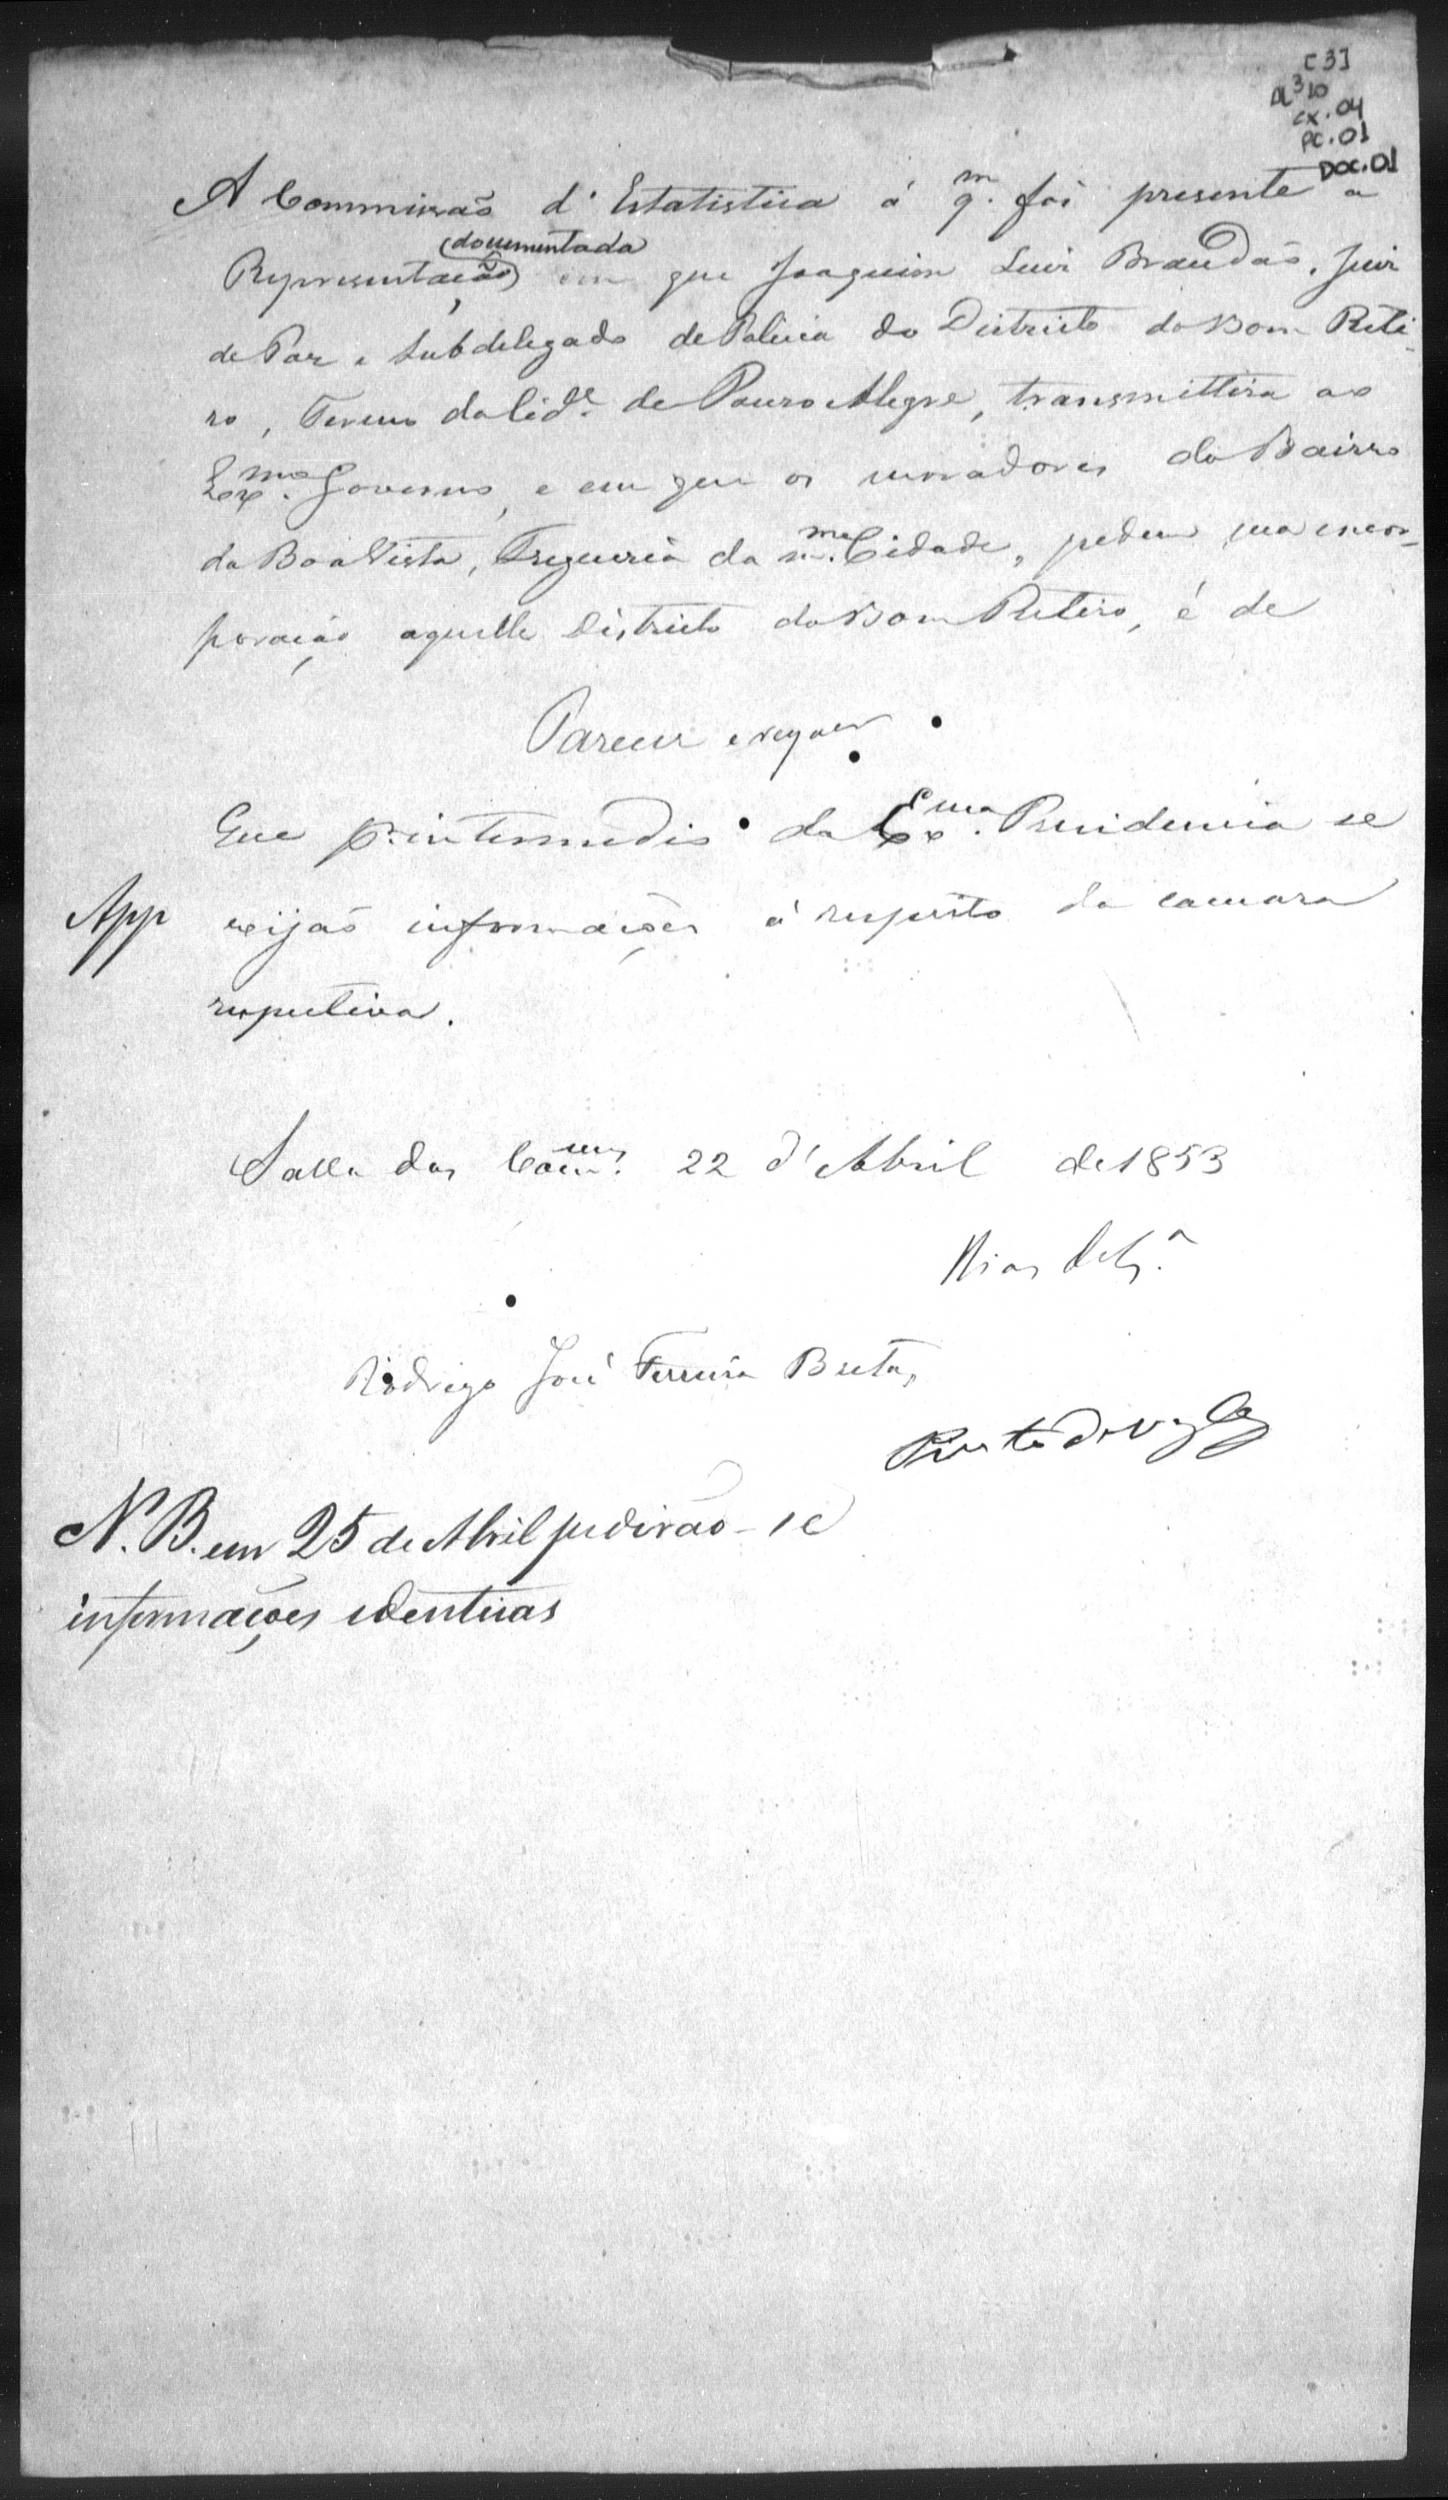 [3]
AL³10
cx.04
PC.01
DOC.01
A Commissaõ d'Estatistica á q.m foi presente a
(documentada
Representação) em que Joaquim Luis Brandaõ, Juis
de Paz e Subdelegado de Policia do Districto do Bom Reti-
ro, Termo da Cid.e de Pouzo Alegre, transmittira ao
Ex.mo Governo, e em que os moradores do Bairro
da Boa Vista, Freguezia da m.ma Cidade, pedem sua encor-
poração aquelle Districto do Bom Retiro, é de
Parecer e requer
Que p.r intermedio da Ex.ma Presidencia se
App
exijaõ informações á respeito da camara
respectiva.
Salla das Com.ens 22 d'Abril de 1853
Rodrigo José Ferreira Bretas
N.B. em 25 de Abril pedirão-se
informações identicas